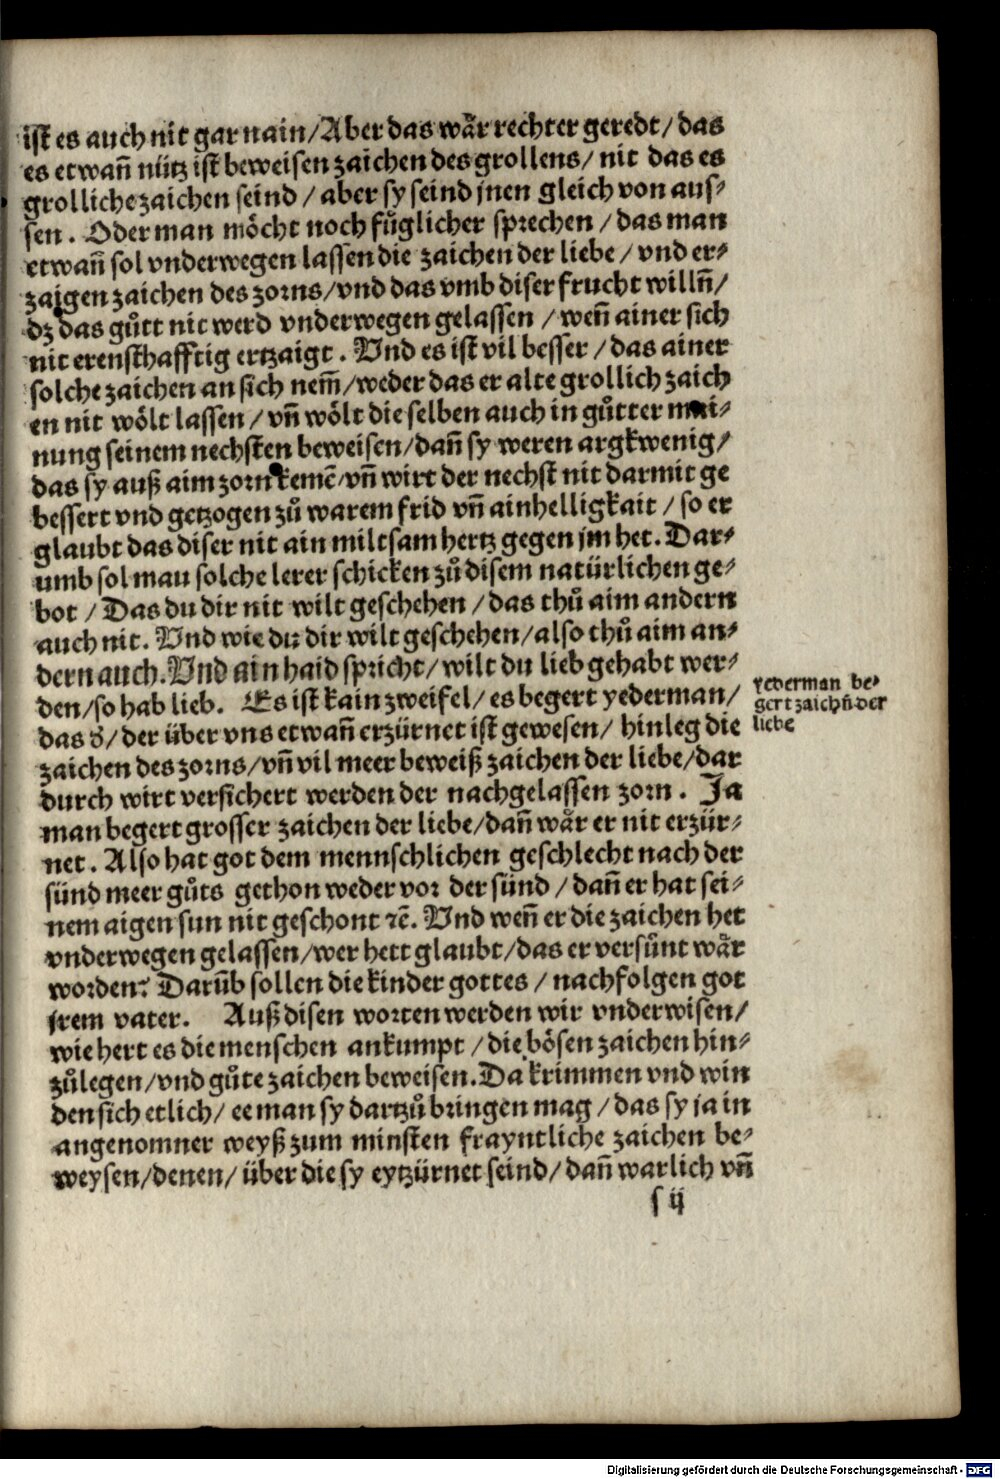 ist es auch nit gar nain/Aber das wår rechter geredt/das
es etwañ nütz ist beweisen zaichen des grollens/ nit das es
grolliche zaichen seind / aber sy seind jnen gleich von aus⸗
sen. Oder man möcht noch fůglicher sprechen / das man
etwañ sol vnderwegen lassen die zaichen der liebe / vnd er⸗
zaigen zaichen des zorns/vnd das vmb diser frucht willñ/
dz das gůtt nit werd vnderwegen gelassen / weñ ainer sich
nit erensthafftig ertzaigt. Vnd es ist vil besser / das ainer
solche zaichen an sich nem̃/weder das er alte grollich zaich
en nit wölt lassen / vñ wölt die selben auch in gůtter mai⸗
nung seinem nechsten beweisen/dañ sy weren argkwenig/
das sy auß aim zorn kemẽ/vñ wirt der nechst nit darmit ge
bessert vnd getzogen zů warem frid vñ ainhelligkait / so er
glaubt das diser nit ain miltsam hertz gegen jm het. Dar⸗
umb sol man solche lerer schicken zů disem natürlichen ge⸗
bot / Das du dir nit wilt geschehen / das thů aim andern
auch nit. Vnd wie du dir wilt geschehen/also thů aim an⸗
dern auch. Vnd ain haid spricht/ wilt du lieb gehabt wer⸗
den/so hab lieb. Es ist kain zweifel/ es begert yederman/
das d̕/ der über vns etwañ erzürnet ist gewesen/ hinleg die
zaichen des zorns/vñ vil meer beweiß zaichen der liebe/dar
durch wirt versichert werden der nachgelassen zorn. Ja
man begert grosser zaichen der liebe/dañ wår er nit erzür⸗
net. Also hat got dem mennschlichen geschlecht nach der
sünd meer gůts gethon weder vor der sünd / dañ er hat sei⸗
nem aigen sun nit geschont ⁊c̃. Vnd weñ er die zaichen het
vnderwegen gelassen/wer hett glaubt/das er versůnt wår
worden? Darũb sollen die kinder gottes / nachfolgen got
jrem vater. Auß disen worten werden wir vnderwisen/
wie hert es die menschen ankumpt / die bösen zaichen hin⸗
zůlegen/vnd gůte zaichen beweisen. Da krimmen vnd win
den sich etlich/ ee man sy dartzů bringen mag / das sy ja in
angenomner weyß zum minsten frayntliche zaichen be⸗
weysen/denen/ über die sy eytzürnet seind/ dañ warlich vñ
s ij
yederman be⸗
gert zaichñ der
liebe
Digitalisierung gefördert durch die Deutsche Forschungsgemeinschaft - DFG